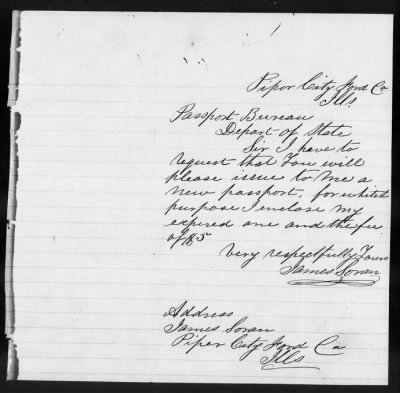 Piper City Ford Co
Ills.
Passport Bureau
Depart of State
Sir I have to
request that You will
please issue to me a
new passport, for which
purpose I enclose my
expired one and the fee
of $5
Very respectfully Yours
James Soran
Address
James Soran
Piper City Ford Co
Ills